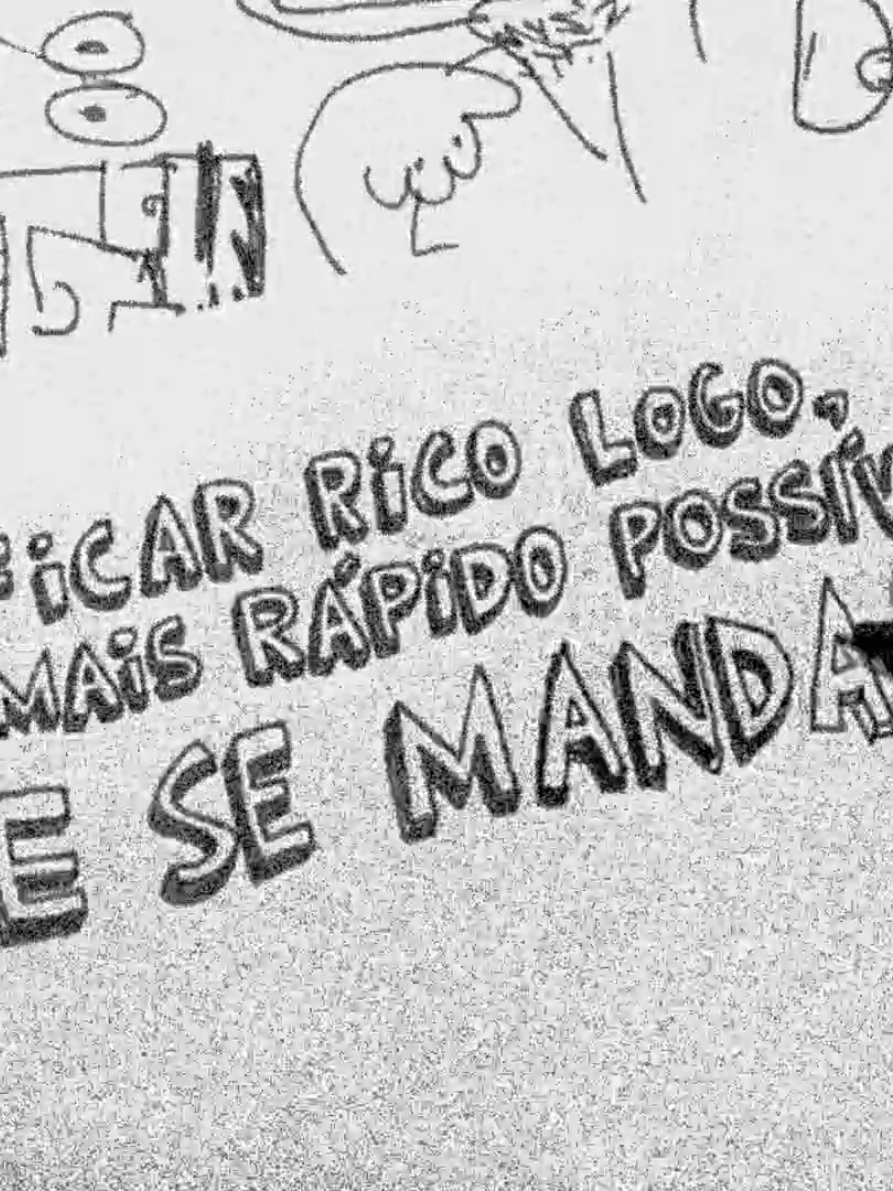 FiCAR RiCO LOGO,
MAiS RÁPiDO POSSÍV
E SE MANDA